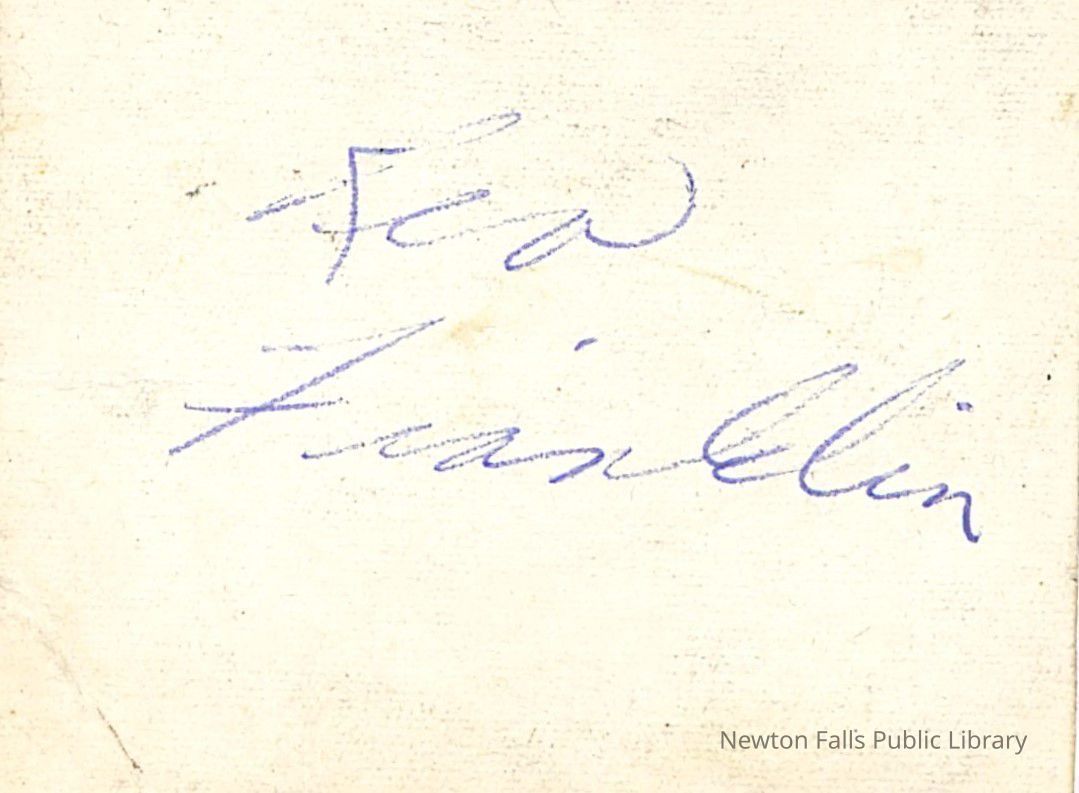 Ken
Franklin
Newton Falls Public Library